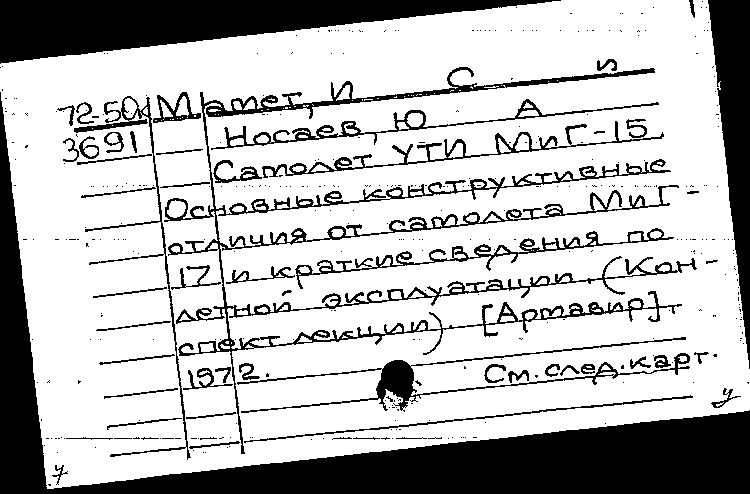 72-50к Мамет, И С и
3691 Носаев, Ю А
Самолет УТИ МиГ-15
Основные конструктивные
отличия от самолета МиГ-
17 и краткие сведения по
летной эксплуатации. (Кон-
спект лекции). [Армавир],
1972.
См. след. карт.
у